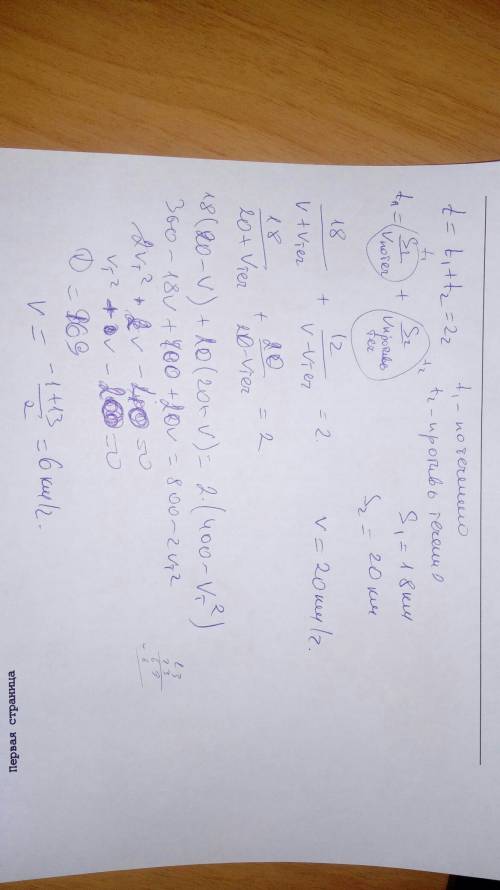 t = t₁ + t₂ = 2ч
t₁ - по течению
t₂ - против течения
tп = S₁/Vпотеч + S₂/Vпротив теч
t₁
t₂
S₁ = 18 км
S₂ = 20 км
18/(V+Vтеч) + 12/(V-Vтеч) = 2
V = 20км/ч.
18/(20+Vтеч) + 20/(20-Vтеч) = 2
18(20-V) + 20(20-V) = 2·(400-Vт²)
360-18V+400+20V = 800-2Vт²
2Vт²+2V-40=0
Vт²+V-20=0
D = 169
V = (-1+13)/2 = 6км/ч.
Первая страница